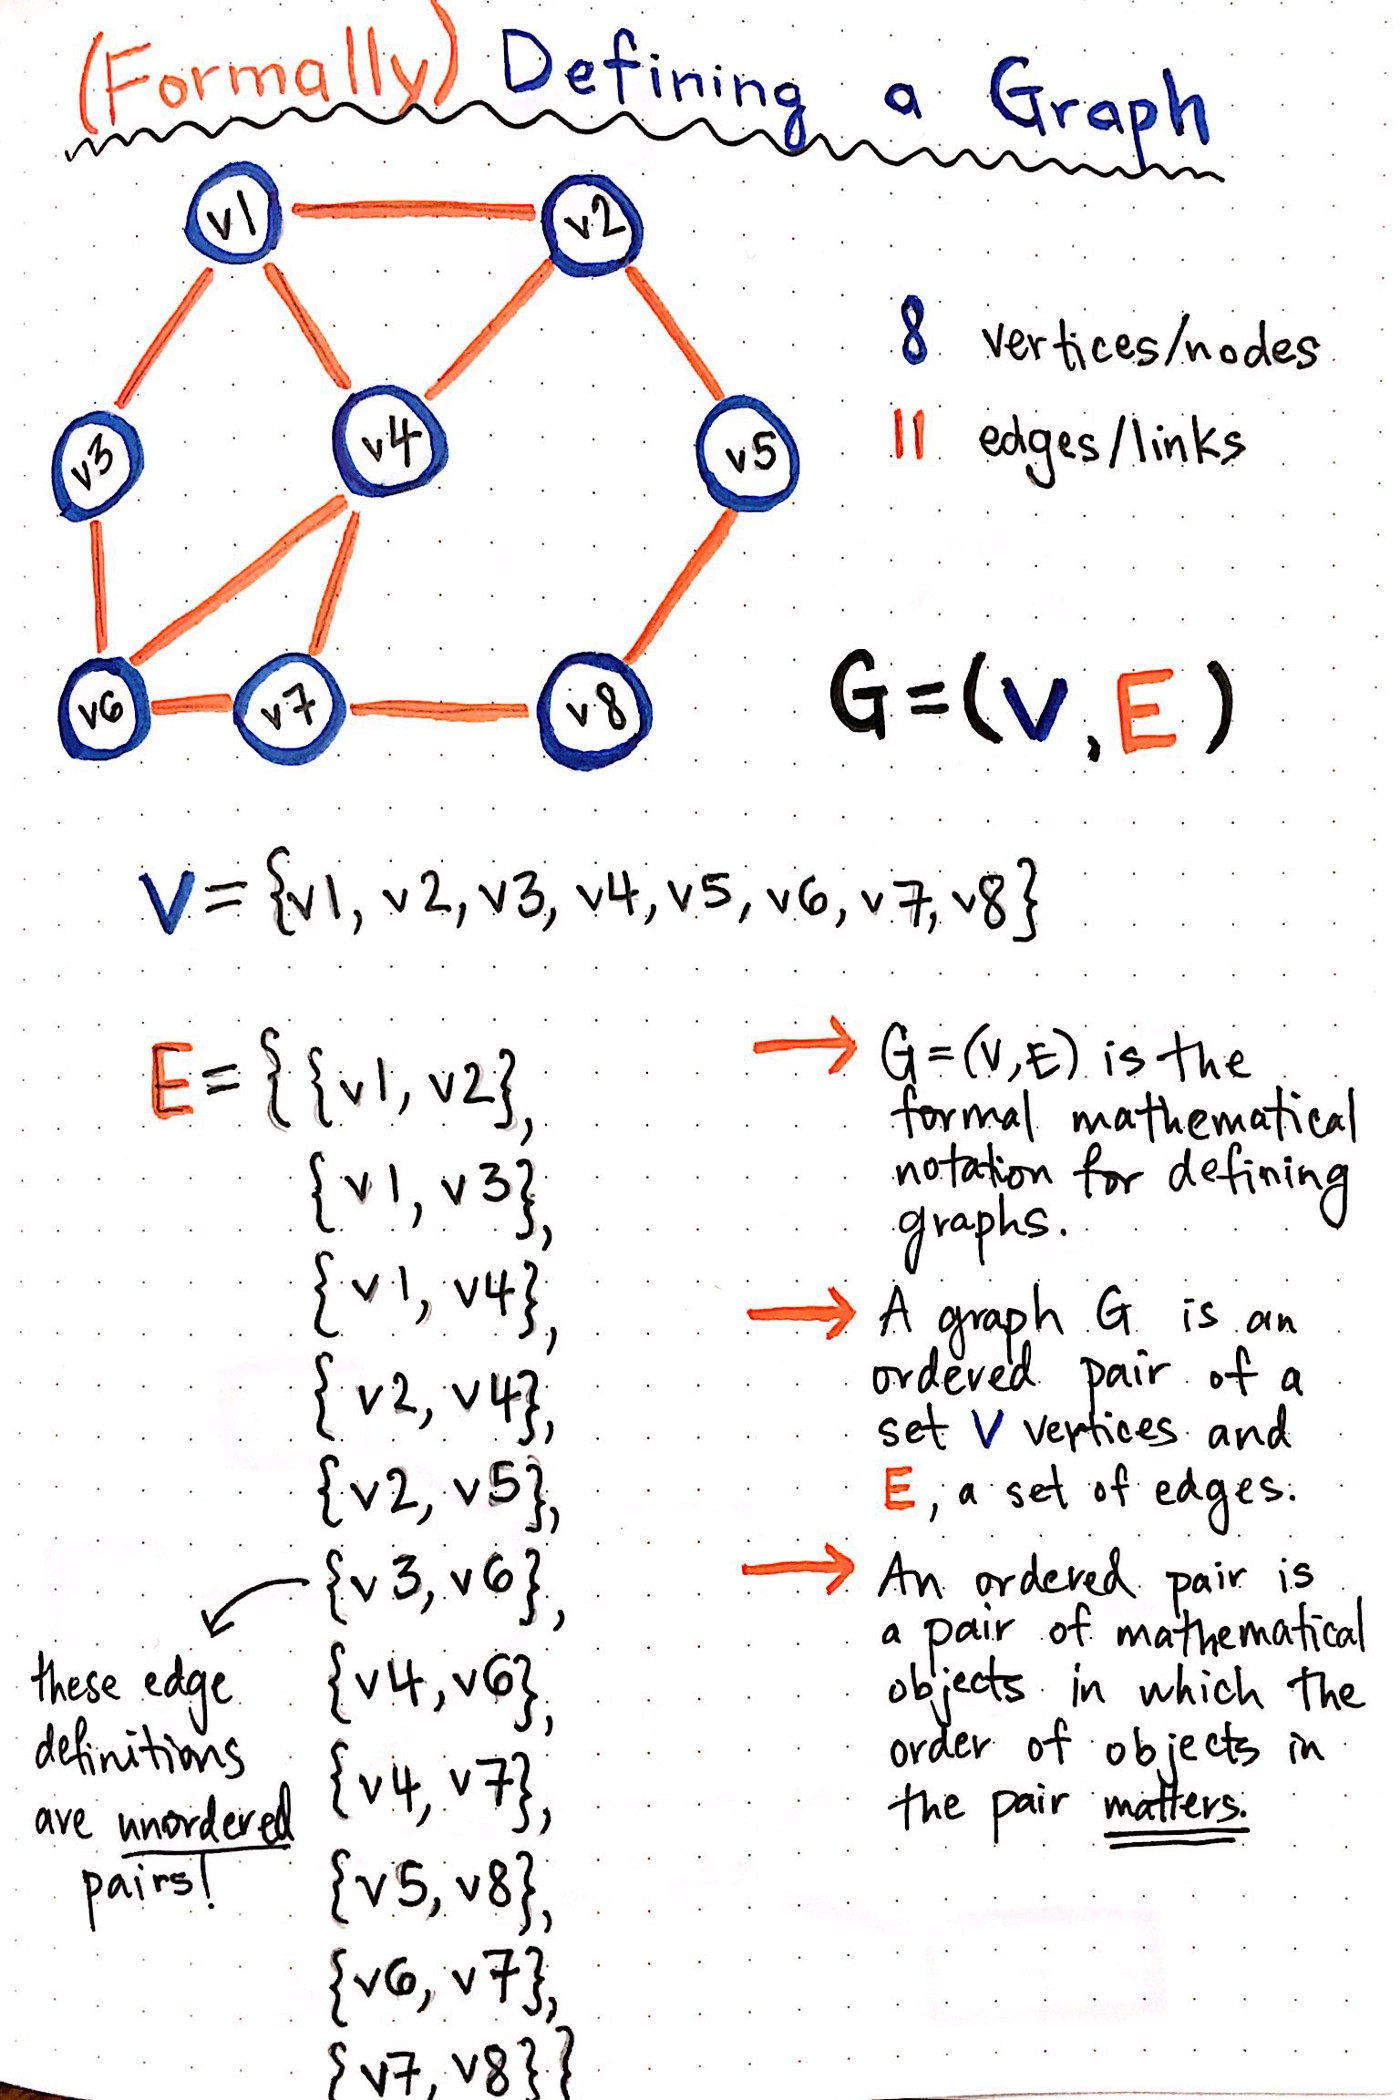 (Formally) Defining a Graph
v1
v2
8 vertices/nodes
11 edges/links
v3
v4
v5
v6
v7
v8
G=(V,E)
V={v1, v2, v3, v4, v5, v6, v7, v8}
E={ {v1, v2},
{v1, v3},
{v1, v4},
{v2, v4},
{v2, v5},
{v3, v6},
{v4, v6},
{v4, v7},
{v5, v8},
{v6, v7},
{v7, v8}}
these edge
definitions
are unordered
pairs!
→ G=(V,E) is the
formal mathematical
notation for defining
graphs.
→ A graph G is an
ordered pair of a
set V vertices and
E, a set of edges.
→ An ordered pair is
a pair of mathematical
objects in which the
order of objects in
the pair matters.